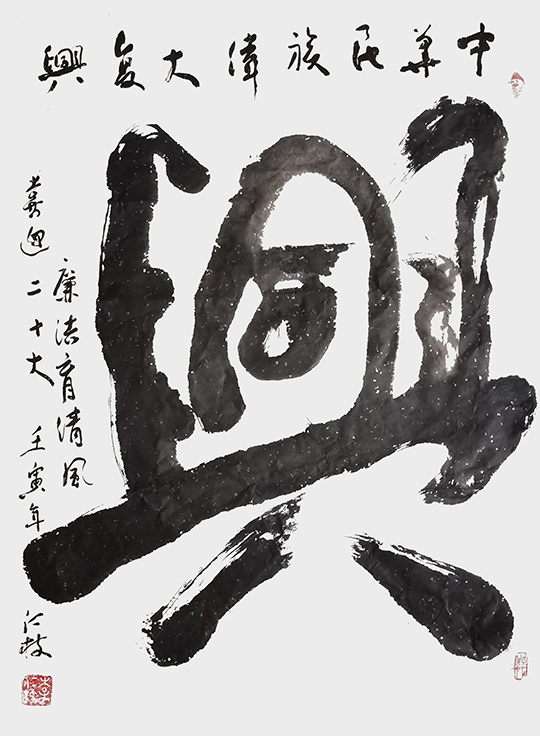 中華民族偉大复興
興
廉洁育清风
喜迎二十大 壬寅年 仁枝